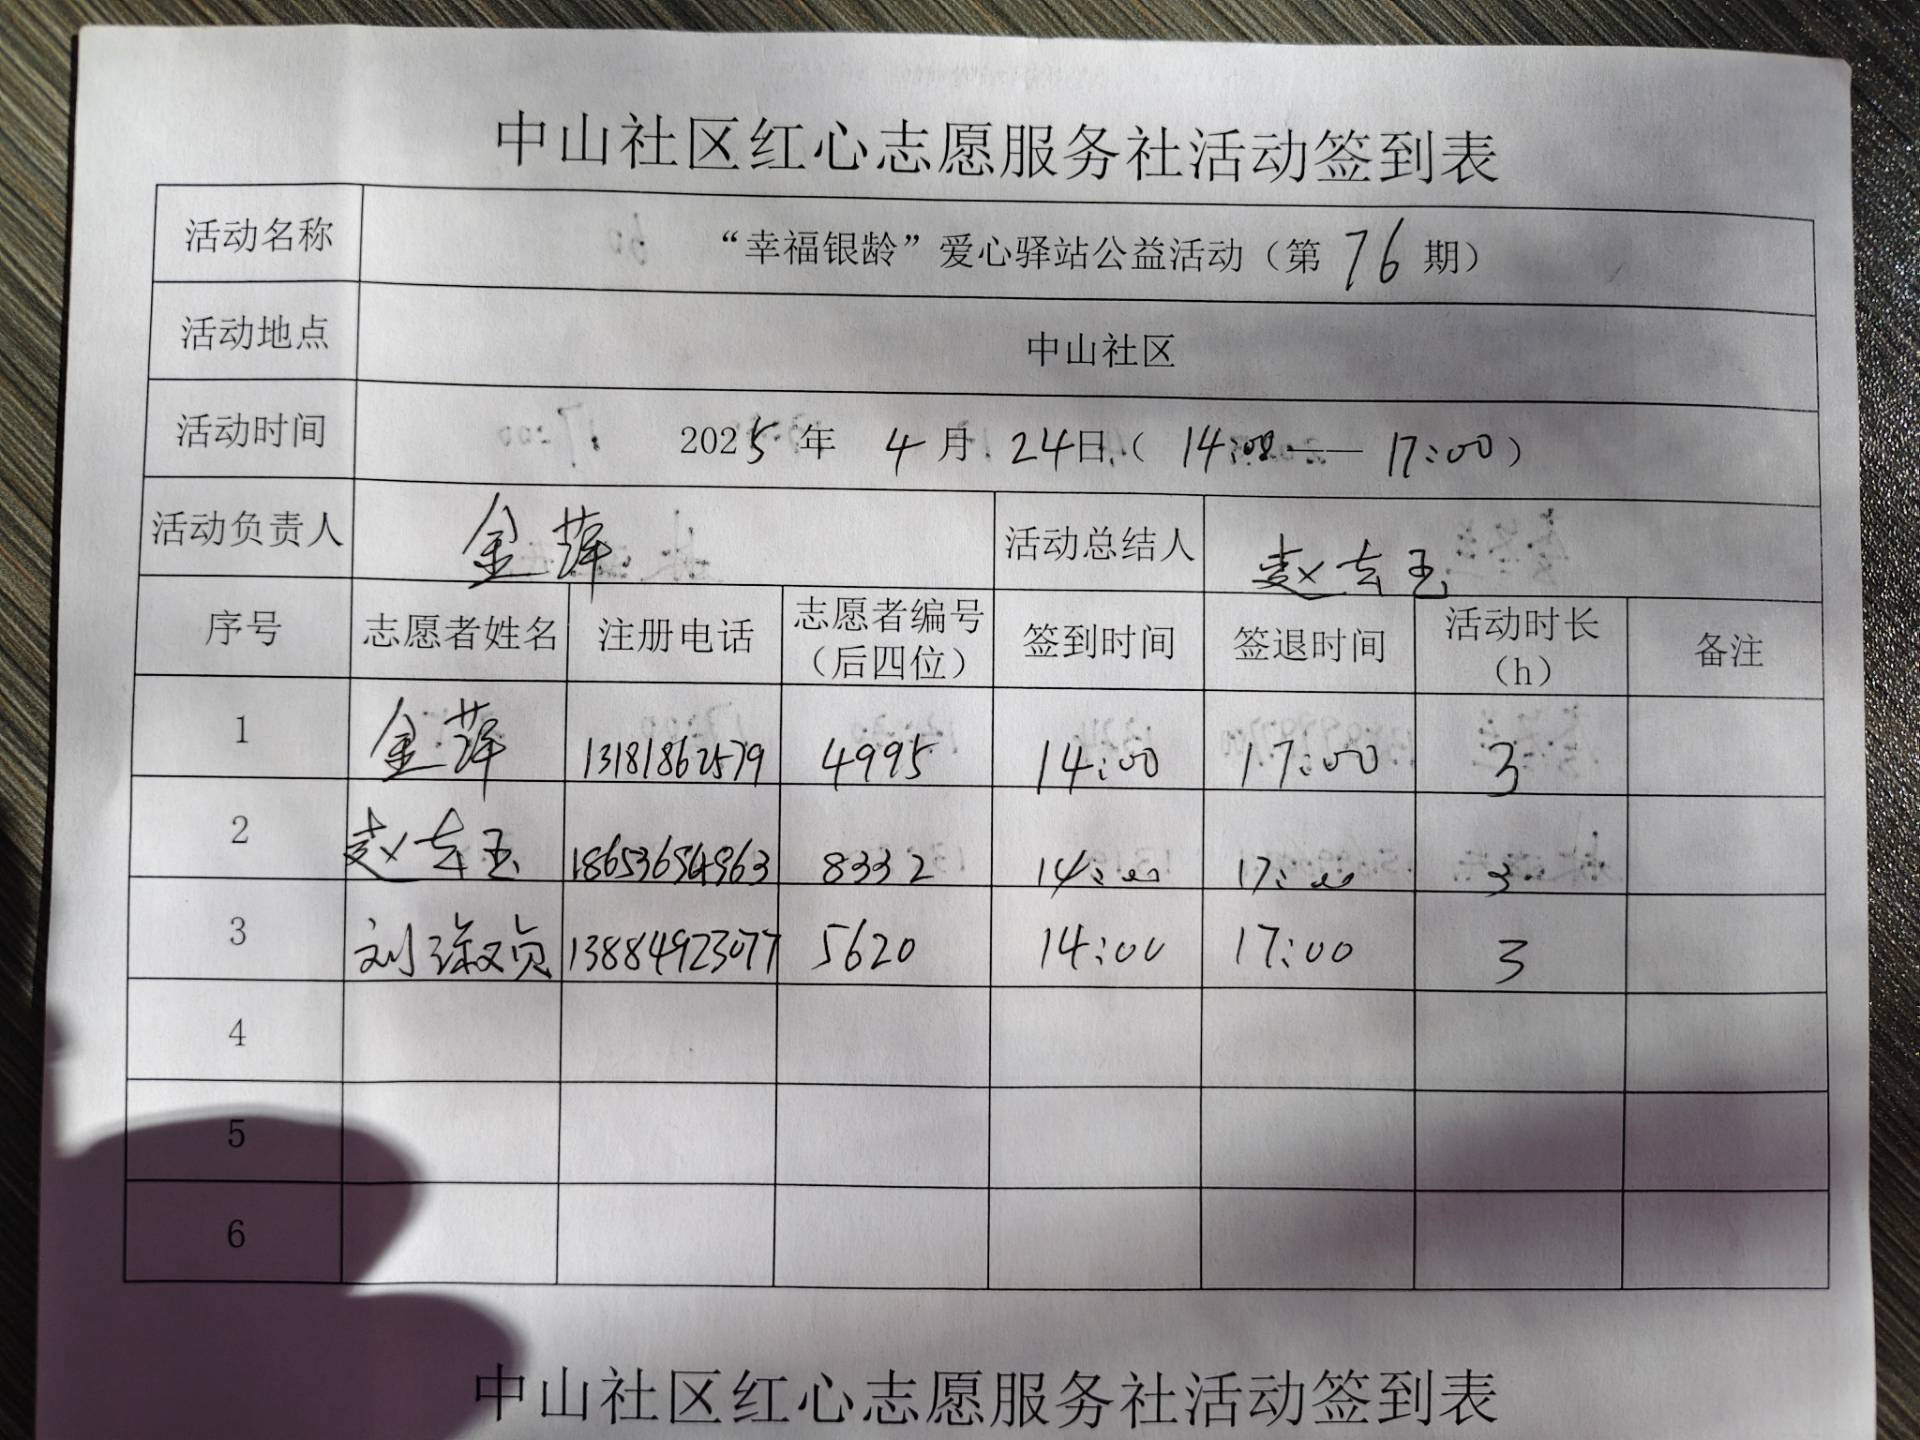 中山社区红心志愿服务社活动签到表
活动名称 “幸福银龄”爱心驿站公益活动（第 76 期）
活动地点 中山社区
活动时间 2025年 4月 24日（14:00——17:00）
活动负责人 金萍 活动总结人 赵志玉
序号 志愿者姓名 注册电话 志愿者编号（后四位） 签到时间 签退时间 活动时长（h） 备注
1 金萍 13181862579 4995 14:00 17:00 3
2 赵志玉 18653654963 8332 14:00 17:00 3
3 刘淑贞 13884923077 5620 14:00 17:00 3
4
5
6
中山社区红心志愿服务社活动签到表